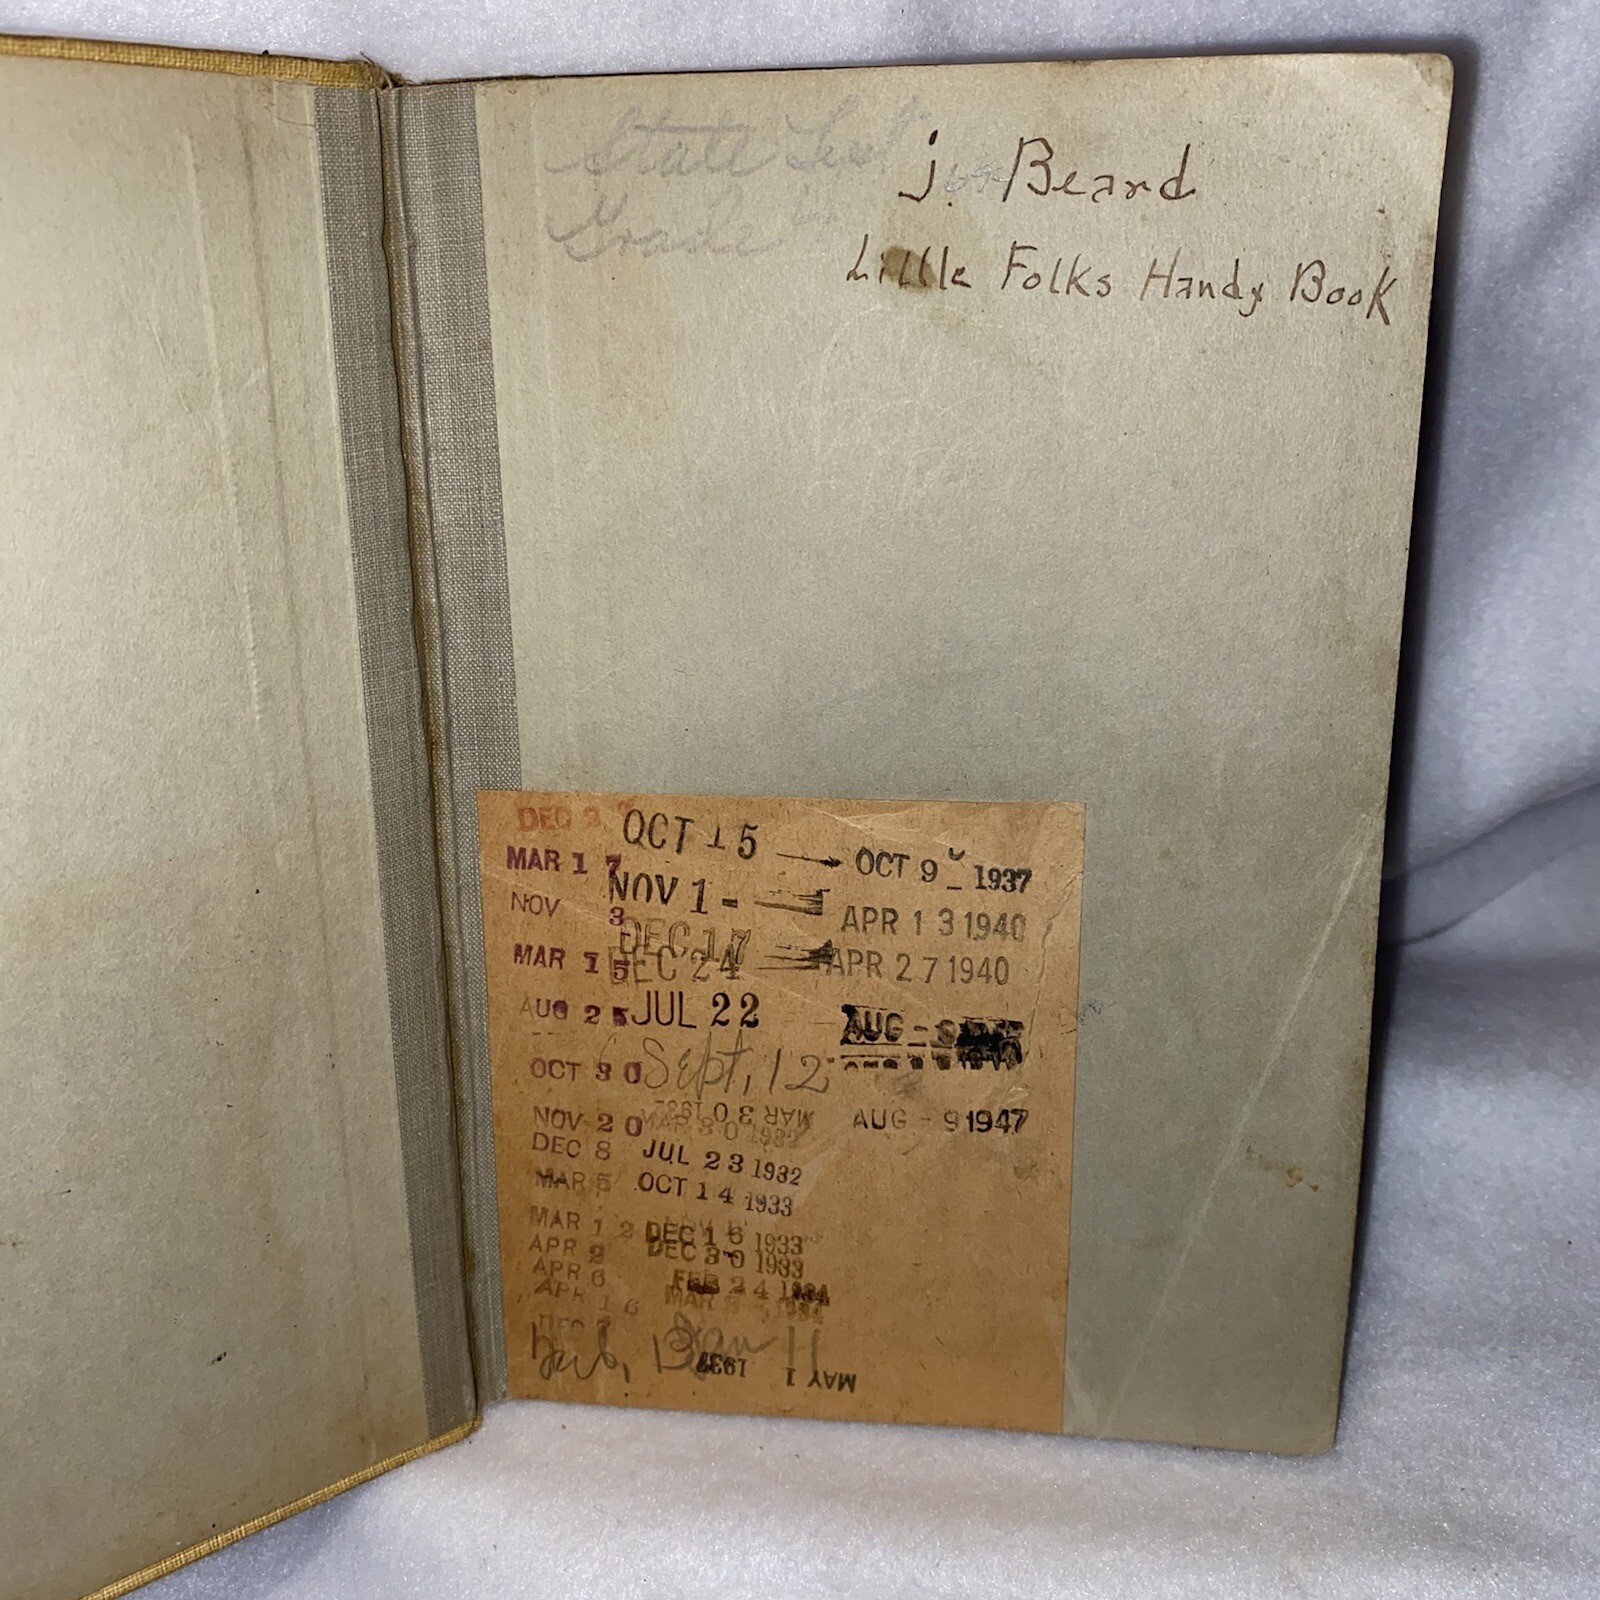 State List
Grade
j. Beard
Little Folks Handy Book
DEC
MAR 17
NOV 3
MAR 15
AUG 25
OCT 30
NOV 20
DEC 8
MAR 5
MAR 12
APR 2
APR 6
APR 16
DEC
OCT 15
NOV 1
DEC 17
DEC 24
JUL 22
Sept. 12
MAR 30 1932
MAR 30 1932
JUL 23 1932
OCT 14 1933
DEC 16 1933
DEC 30 1933
FEB 24 1934
MAR 1934
MAY 1 1937
OCT 9 1937
APR 13 1940
APR 27 1940
AUG
AUG - 9 1947